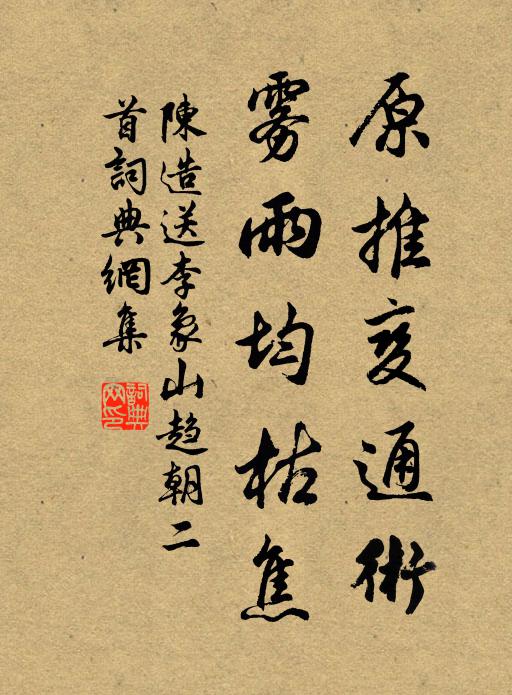 原推变通術
雾雨均枯焦
陳造送李象山趋朝二
首詞典網集
詞典
网印